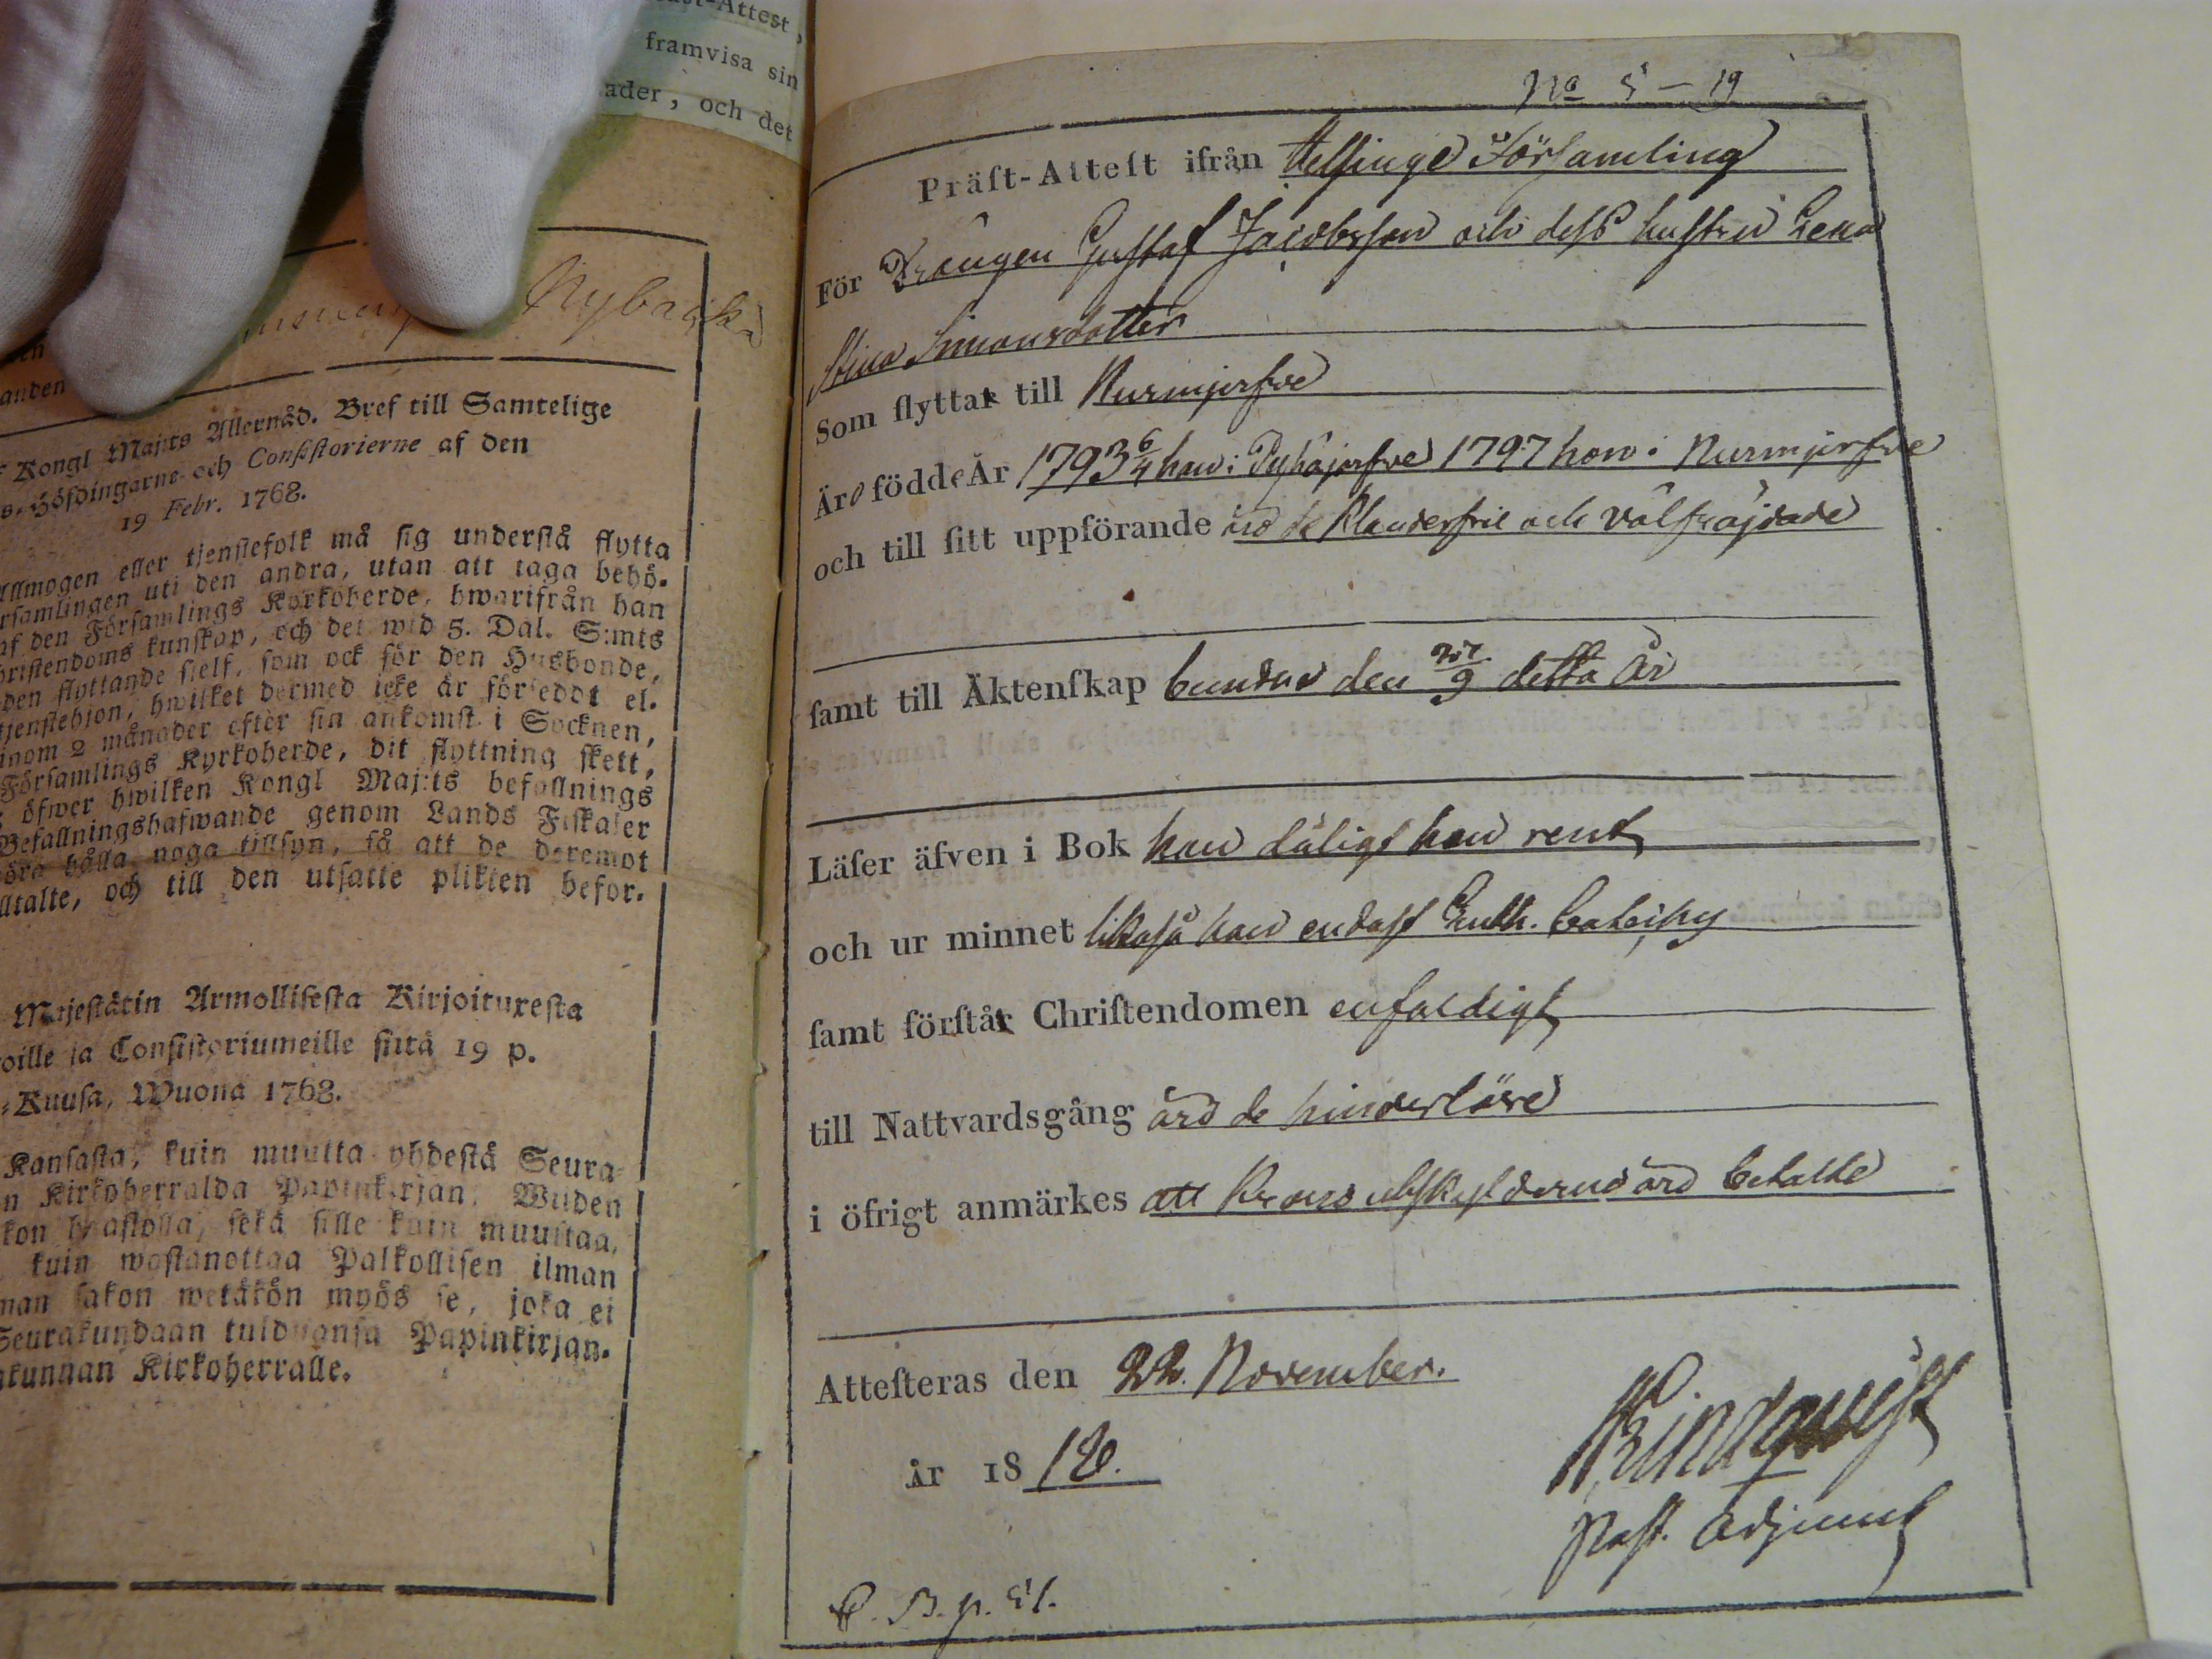 -Attest,
framvisa sin
ader, och det
Nybacka
anden
Kongl Maj:ts Allernåd. Bref till Samtelige
Höfdingarne och Consistorierne af den
19 Febr. 1768.
Allmogen eller tjenstefolk må sig understå flytta
rsamlingen uti den andra, utan att taga behö-
af den Församlings Kyrkoherde, hwarifrån han
hristendoms kunskap, och det wid 5. Dal. S:mts
den flyttande sielf, som ock för den Husbonde,
tjenstehion, hwilket dermed icke är försedot el-
inom 2 månader efter sin ankomst i Socknen,
Församlings Kyrkoherde, dit flyttning skett,
öfwer hwilken Kongl Maj:ts befallnings
Befallningshafwande genom Lands Fiskaler
öra hålla noga tillsyn, så att de deremot
iltalte, och till den utsatte plikten befor-
Majestätin Armollisesta Kirjoituxesta
oille ja Consistoriumeille siitä 19 p.
-Kuusa, Wuona 1768.
Kansasta, kuin muutta yhdestä Seura-
n Kirkoherralda Papinkirjan, Wiiden
kon hästolla, sekä sille kuin muuttaa,
kuin wastanottaa Palkollisen ilman
man sakon wetäkön myös se, joka ei
Seurakundaan tulduansa Papinkirjan
kunnan Kirkoherralle.
No 5 – 19
Präst-Attest ifrån Helsinge Församling
För Drängen Gustaf Jacobsson och dess hustru Lena
Stina Simonsdotter
Som flyttar till Nurmijerfve
Äro födde År 1793 6/4 han i Pyhäjerfve 1797 hon i Nurmijerfve
och till sitt uppförande äro de Klanderfrie och välfräjdade
samt till Äktenskap bundne den 27/9 detta år
Läser äfven i Bok han dåligt hon rent
och ur minnet likaså han endast Luth. Cateches
samt förstår Christendomen enfaldigt
till Nattvardsgång äro de hinderlöse
i öfrigt anmärkes att Krono utskylderna äro betalte
Attesteras den 22. November.
år 1818.
Lindquist
Past. Adjunct
C. B. p. 51.